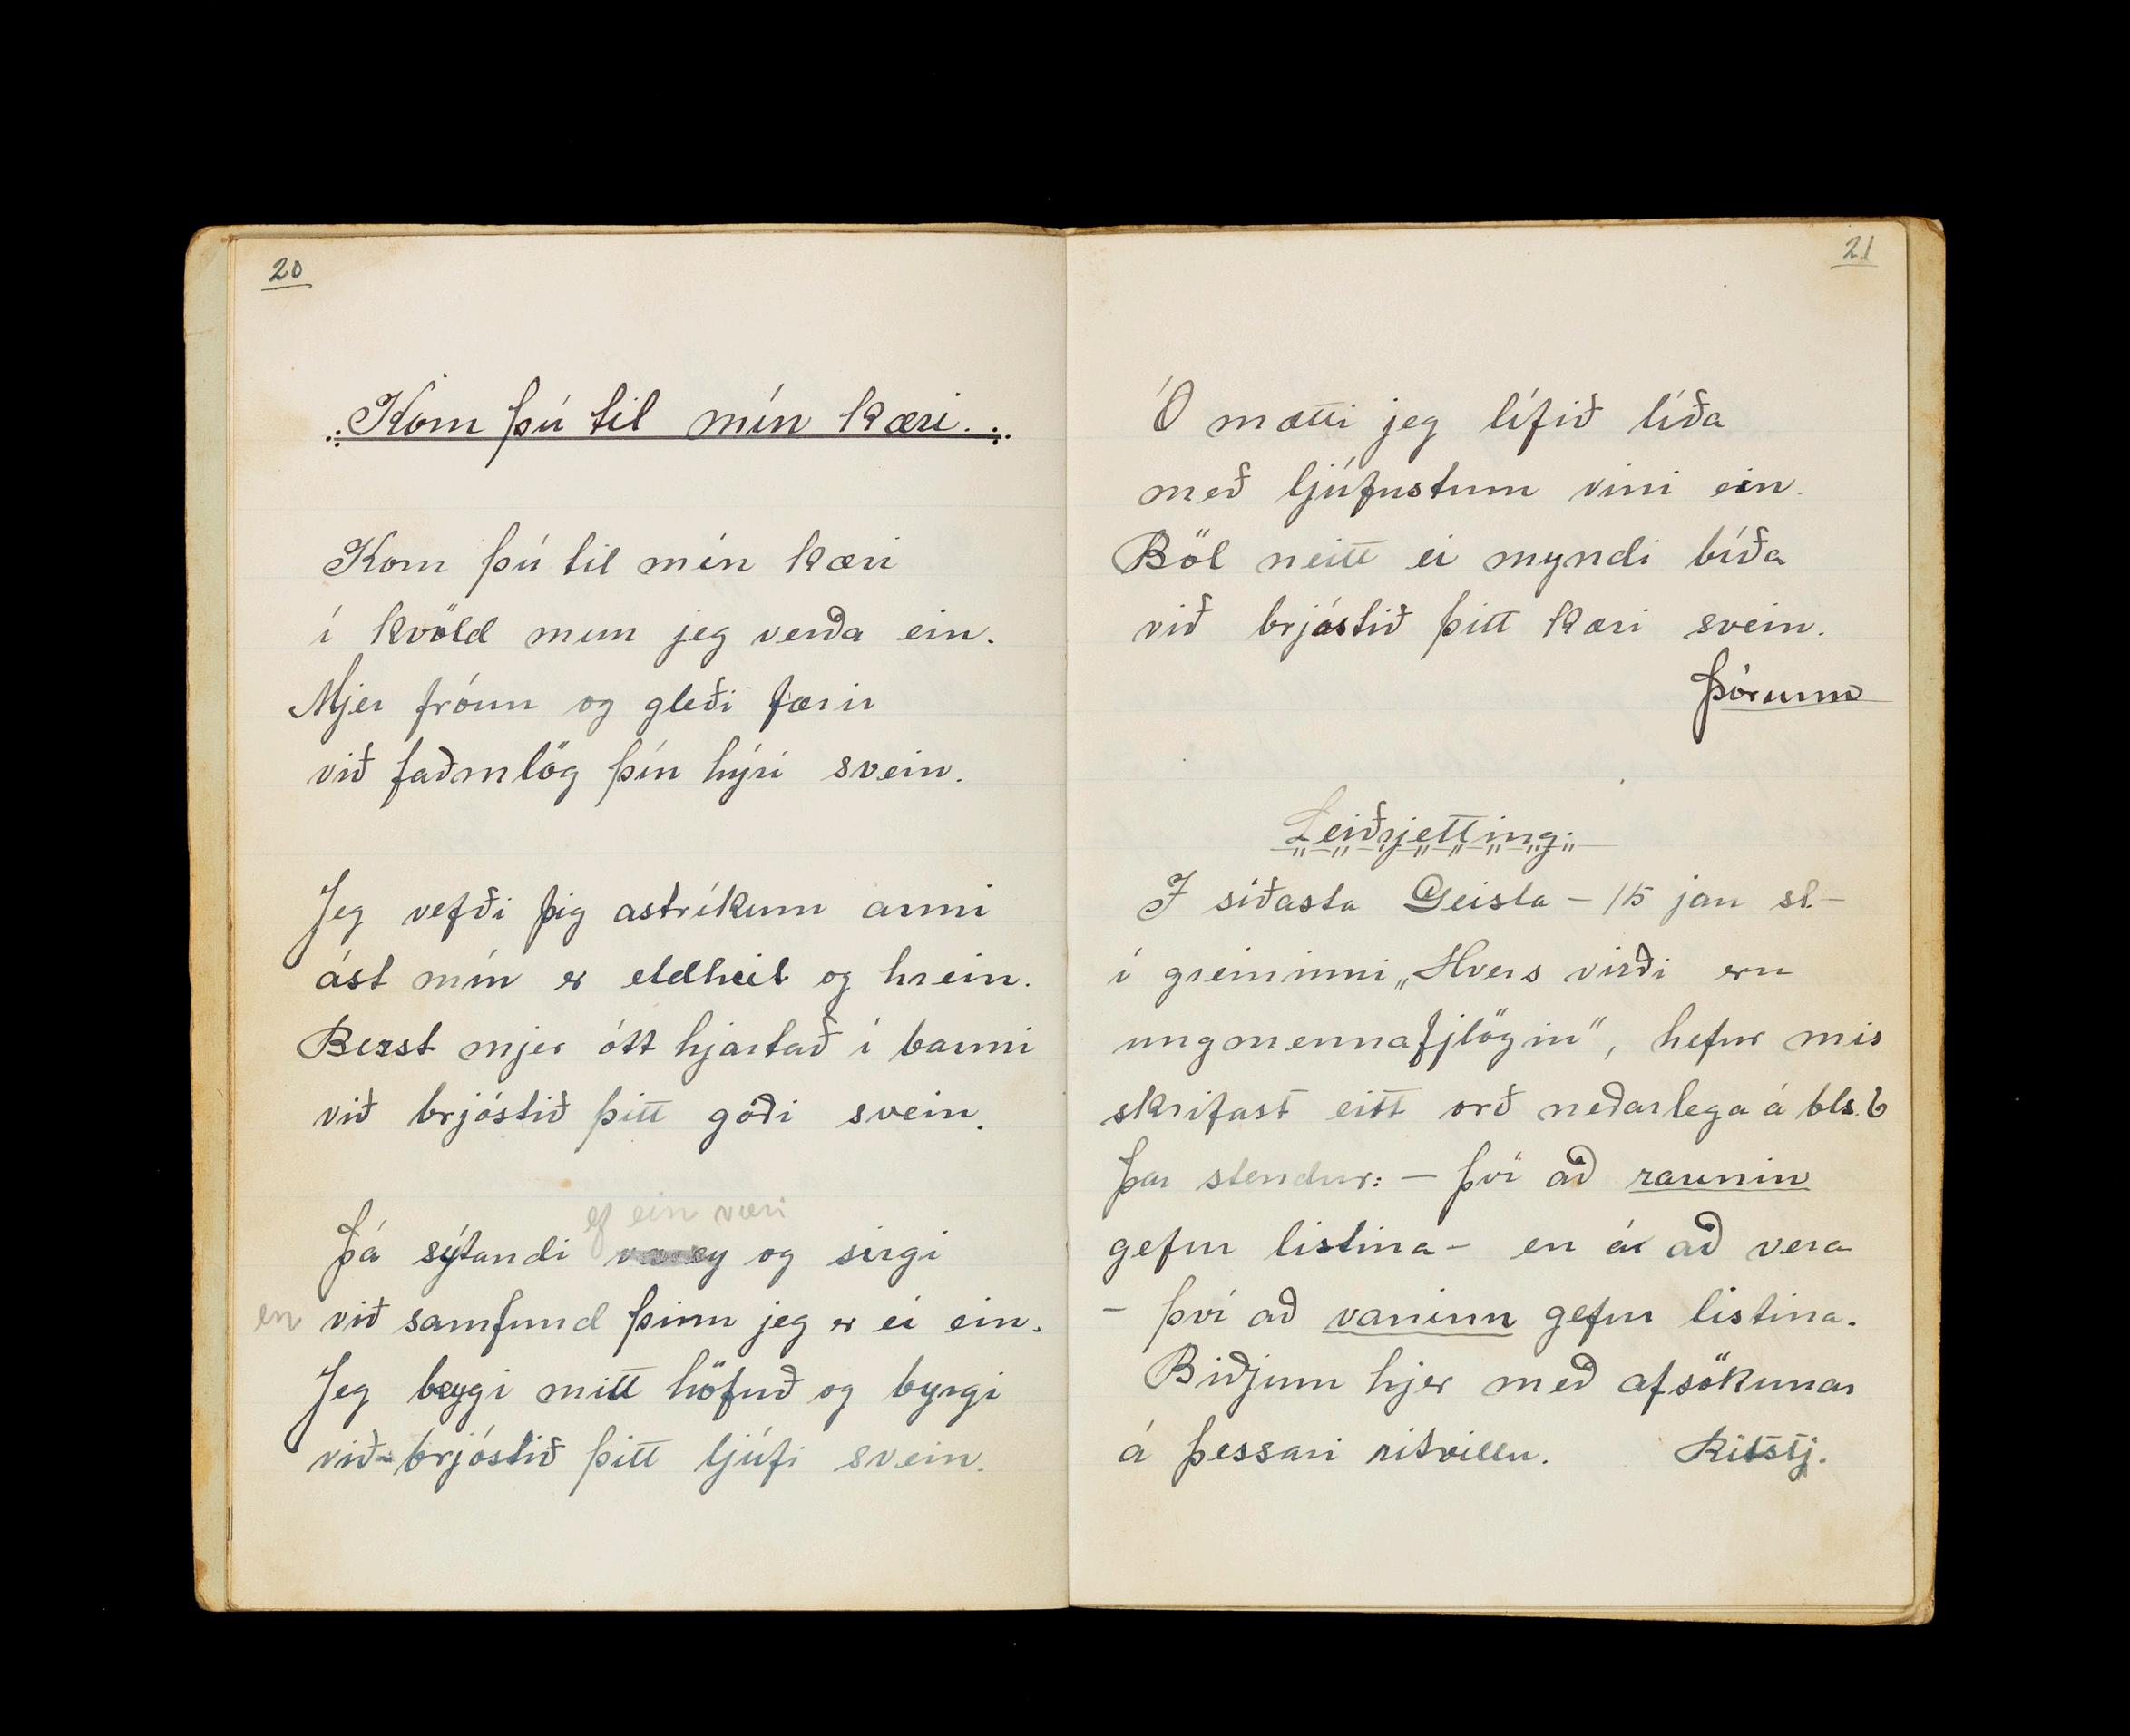 20
Kom þú til mín kæri.
Kom þú til mín kæri
í kvöld mun jeg verða ein.
Mjer fróun og gleði færir
við faðmlög þín hýri svein.
Jeg vefði þig astríkum armi
ást mín er eldheit og hrein.
Berst mjer ótt hjartað í barmi
við brjóstið þitt góði svein.
ef ein væri
Þá sýtandi og sirgi
en við samfund þinn jeg er ei ein.
Jeg beygi mitt höfuð og byrgi
við brjóstið þitt ljúfi svein.
21
Ó mætti jeg lífið líða
með ljúfustum vini ein.
Böl neitt ei myndi bíða
við brjóstið þitt kæri svein.
Þórunn
Leiðrjetting:
Í síðasta Geisla - 15 jan sl. -
í greininni „Hvers virði eru
ungmennafjlögin", hefur mis
skrifast eitt orð neðarlega á bls. 6
Þar stendur: - því að raunin
gefur listina - en á að vera
- því að vaninn gefur listina.
Biðjum hjer með afsökunar
á þessari ritvillu. Ritstj.